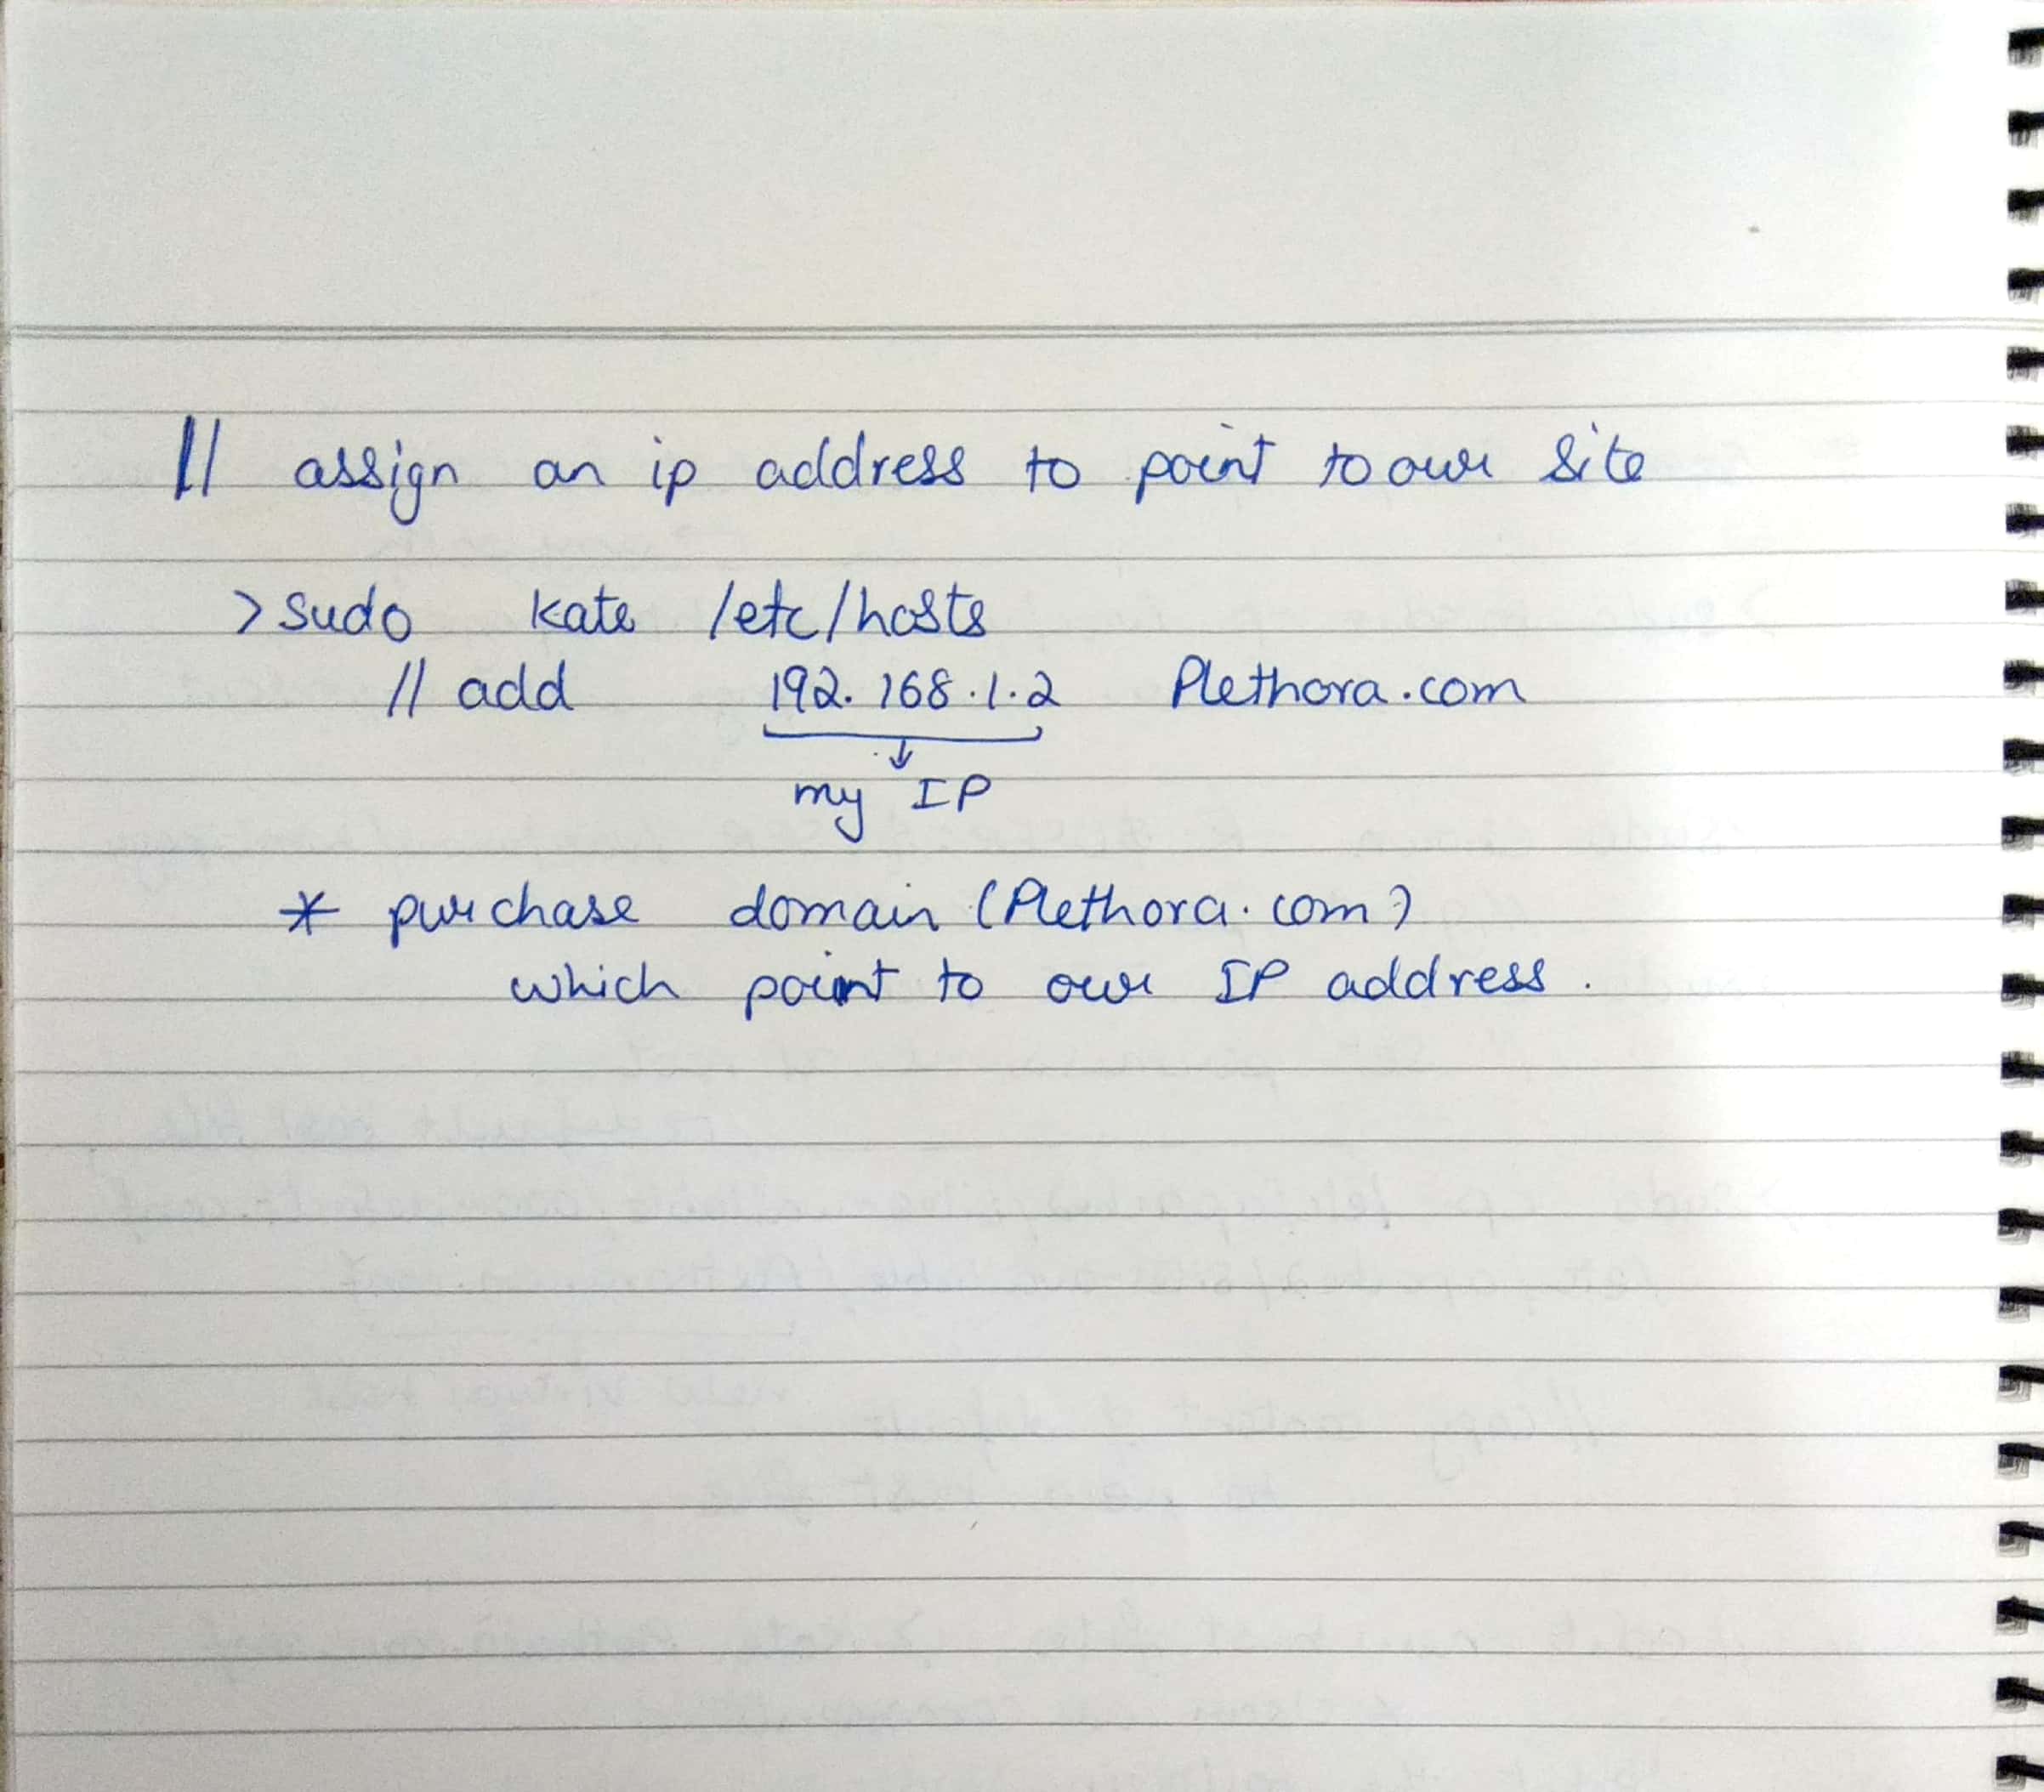 // assign an ip address to point to our site
> sudo kate /etc/hosts
// add 192.168.1.2 Plethora.com
↓
my IP
* purchase domain (Plethora.com)
which point to our IP address.